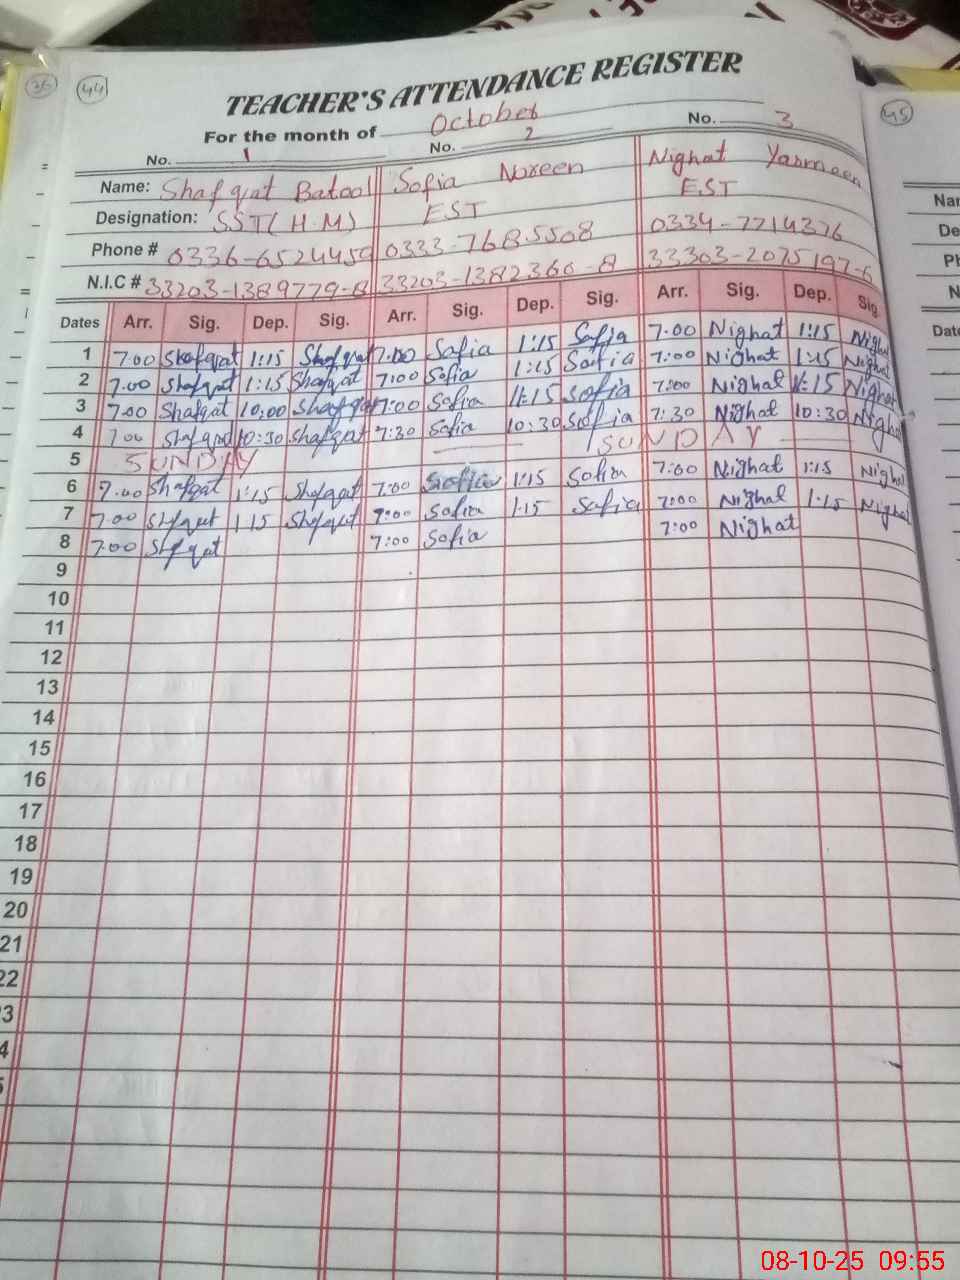 36 44 45
TEACHER'S ATTENDANCE REGISTER
For the month of October
No. 1 No. 2 No. 3
Name: Shafqat Batool Sofia Noreen Nighat Yasmeen
Designation: SST(H.M) EST EST
Phone # 0336-6524459 0333-7685508 0334-7714376
N.I.C # 33203-1389779-8 33203-1382360-8 33303-2075197-6
Dates Arr. Sig. Dep. Sig. Arr. Sig. Dep. Sig. Arr. Sig. Dep. Sig.
1 7.00 Shafqat 1:15 Shafqat 7.00 Safia 1:15 Safia 7.00 Nighat 1:15 Nighat
2 7.00 Shafqat 1:15 Shafqat 7:00 Sofia 1:15 Safia 7:00 Nighat 1:15 Nighat
3 7.00 Shafqat 10:00 Shafqat 7:00 Sofia 11:15 Sofia 7:00 Nighat 11:15 Nighat
4 7.00 Shafqat 10:30 Shafqat 7:30 Sofia 10:30 Sofia 7:30 Nighat 10:30 Nighat
5 SUNDAY SUNDAY
6 7.00 Shafqat 1:15 Shafqat 7:00 Sofia 1:15 Sofia 7:00 Nighat 1:15 Nighat
7 7.00 Shfqat 1:15 Shafqat 7:00 Sofia 1:15 Safia 7:00 Nighat 1:15 Nighat
8 7:00 Shfqat 7:00 Sofia 7:00 Nighat
9
10
11
12
13
14
15
16
17
18
19
20
21
22
08-10-25 09:55